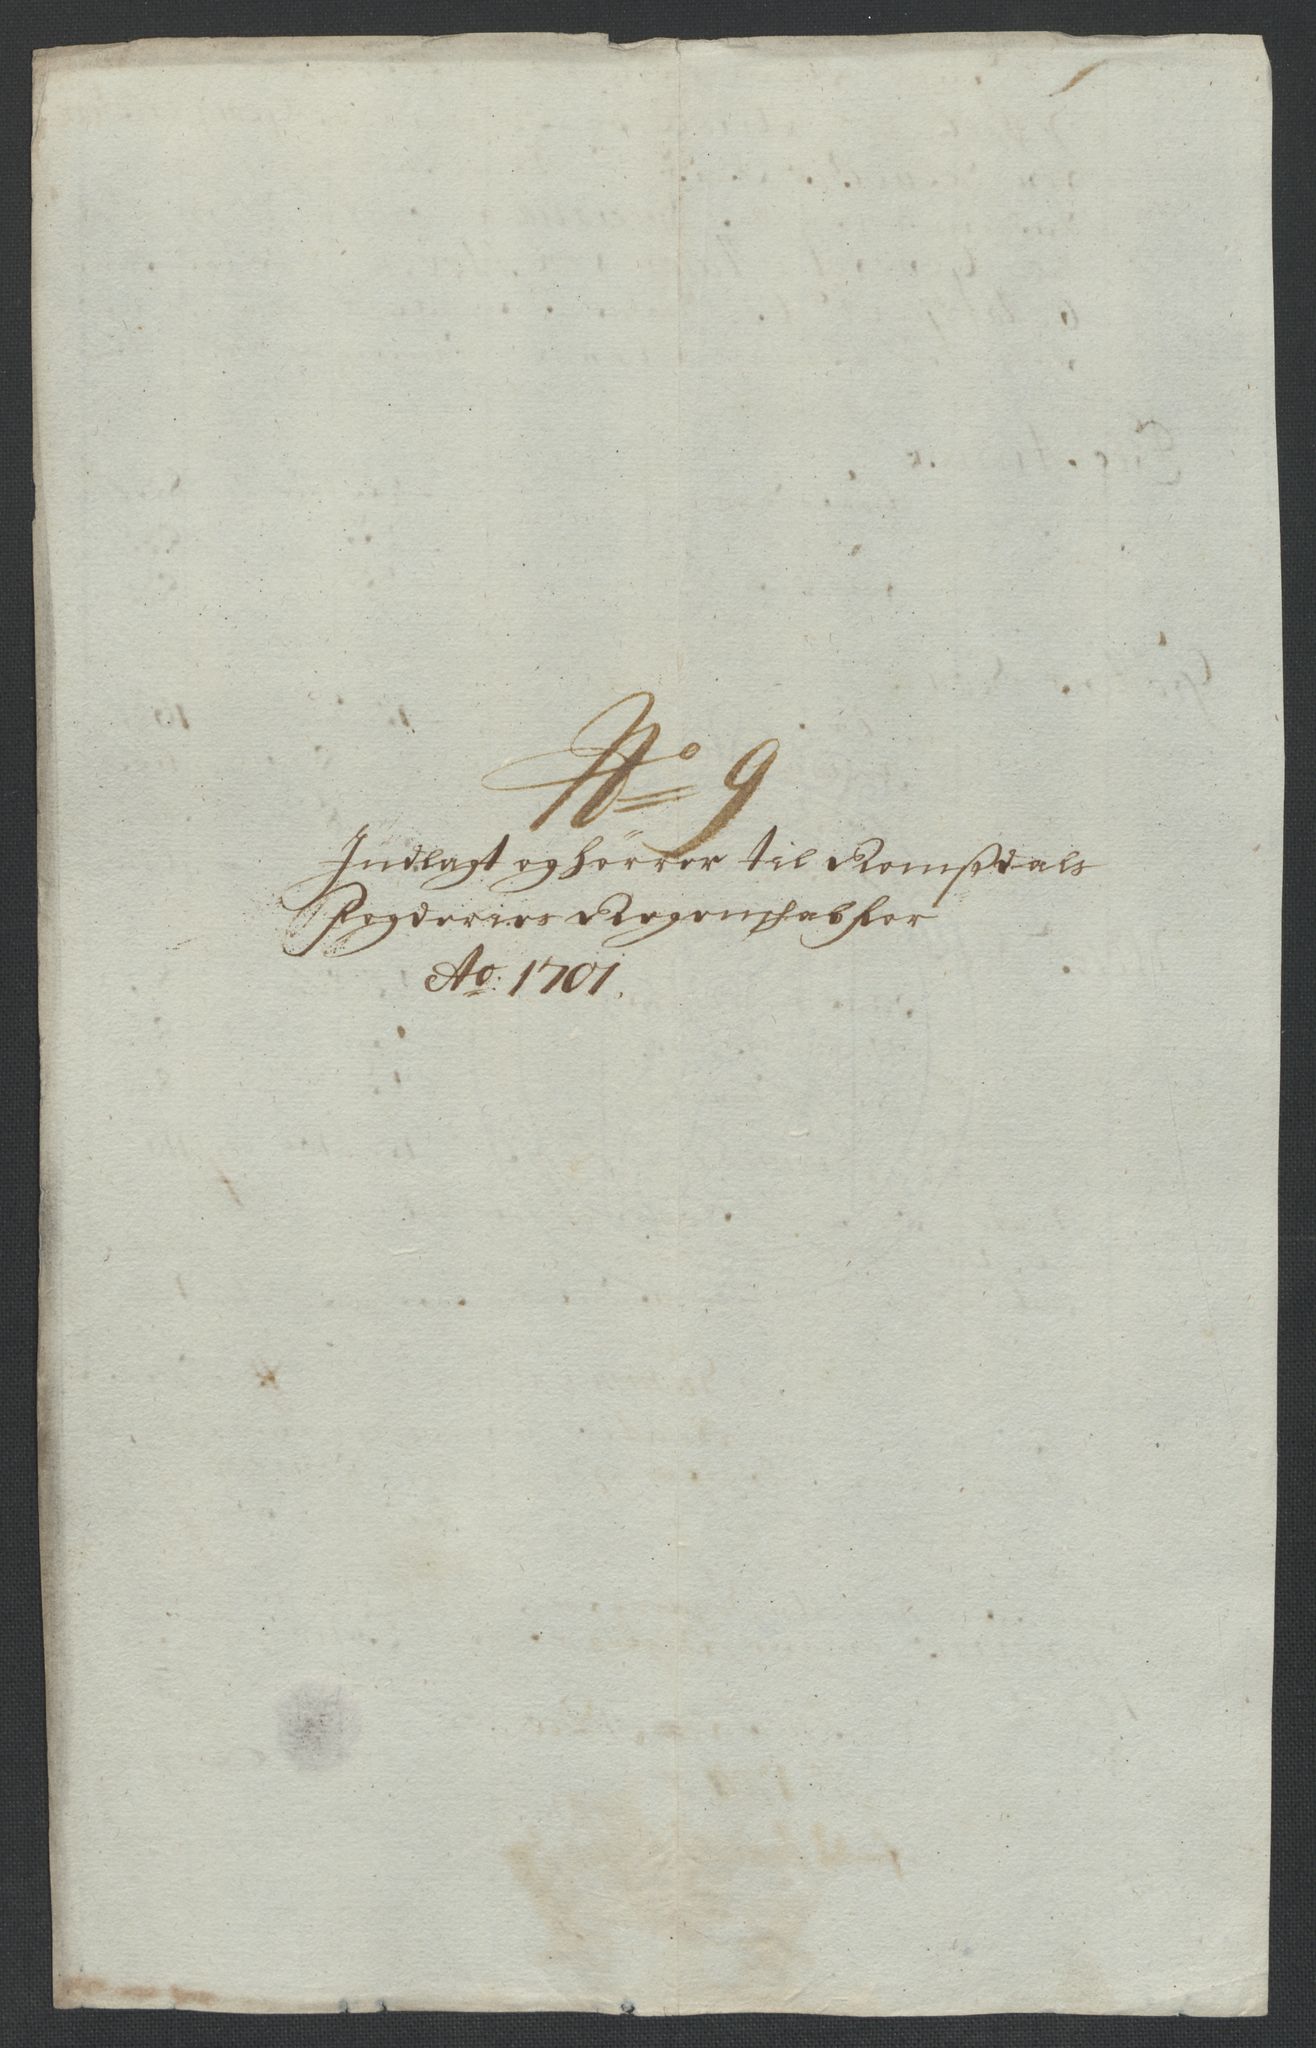 No 9
Indlagt og hörrer til Romßdals
Fogderies Regenschab for
Ao: 1701.